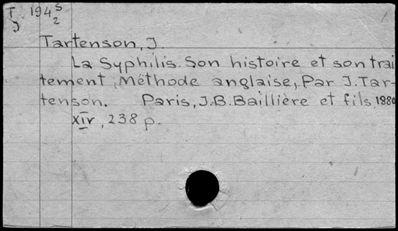 T. 194 S
J 2
Tartenson, J.
La Syphilis. Son histoire et son trai
tement, Méthode anglaise, Par J. Tar-
tenson. Paris, J.B. Baillière et fils, 1880
XIV, 238 p.